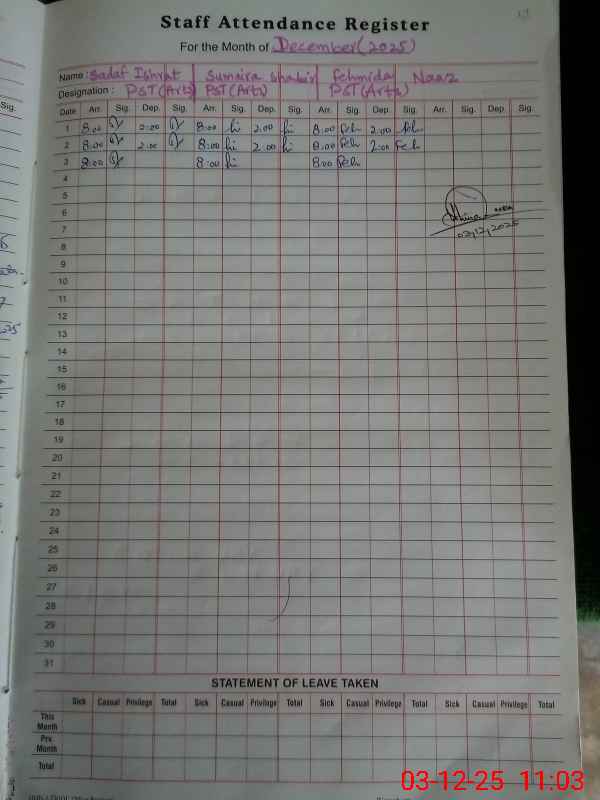 Staff Attendance Register
For the Month of December (2025)
Name : Sadaf Ishrat Sumaira Shabir Fehmida Naaz
Designation : PST(Arts) PST(Arts) PST(Arts)
Date Arr. Sig. Dep. Sig. Arr. Sig. Dep. Sig. Arr. Sig. Dep. Sig. Arr. Sig. Dep. Sig.
1 8:00 2:00 8:00 2:00 8:00 feh 2:00 feh
2 8:00 2:00 8:00 2:00 8:00 feh 2:00 feh
3 8:00 8:00 8:00 feh
4
5
6
7
02,12,2025
8
9
10
11
12
13
14
15
16
17
18
19
20
21
22
23
24
25
26
27
28
29
30
31
STATEMENT OF LEAVE TAKEN
Sick Casual Privilege Total Sick Casual Privilege Total Sick Casual Privilege Total Sick Casual Privilege Total
This Month
Prv. Month
Total
03-12-25 11:03